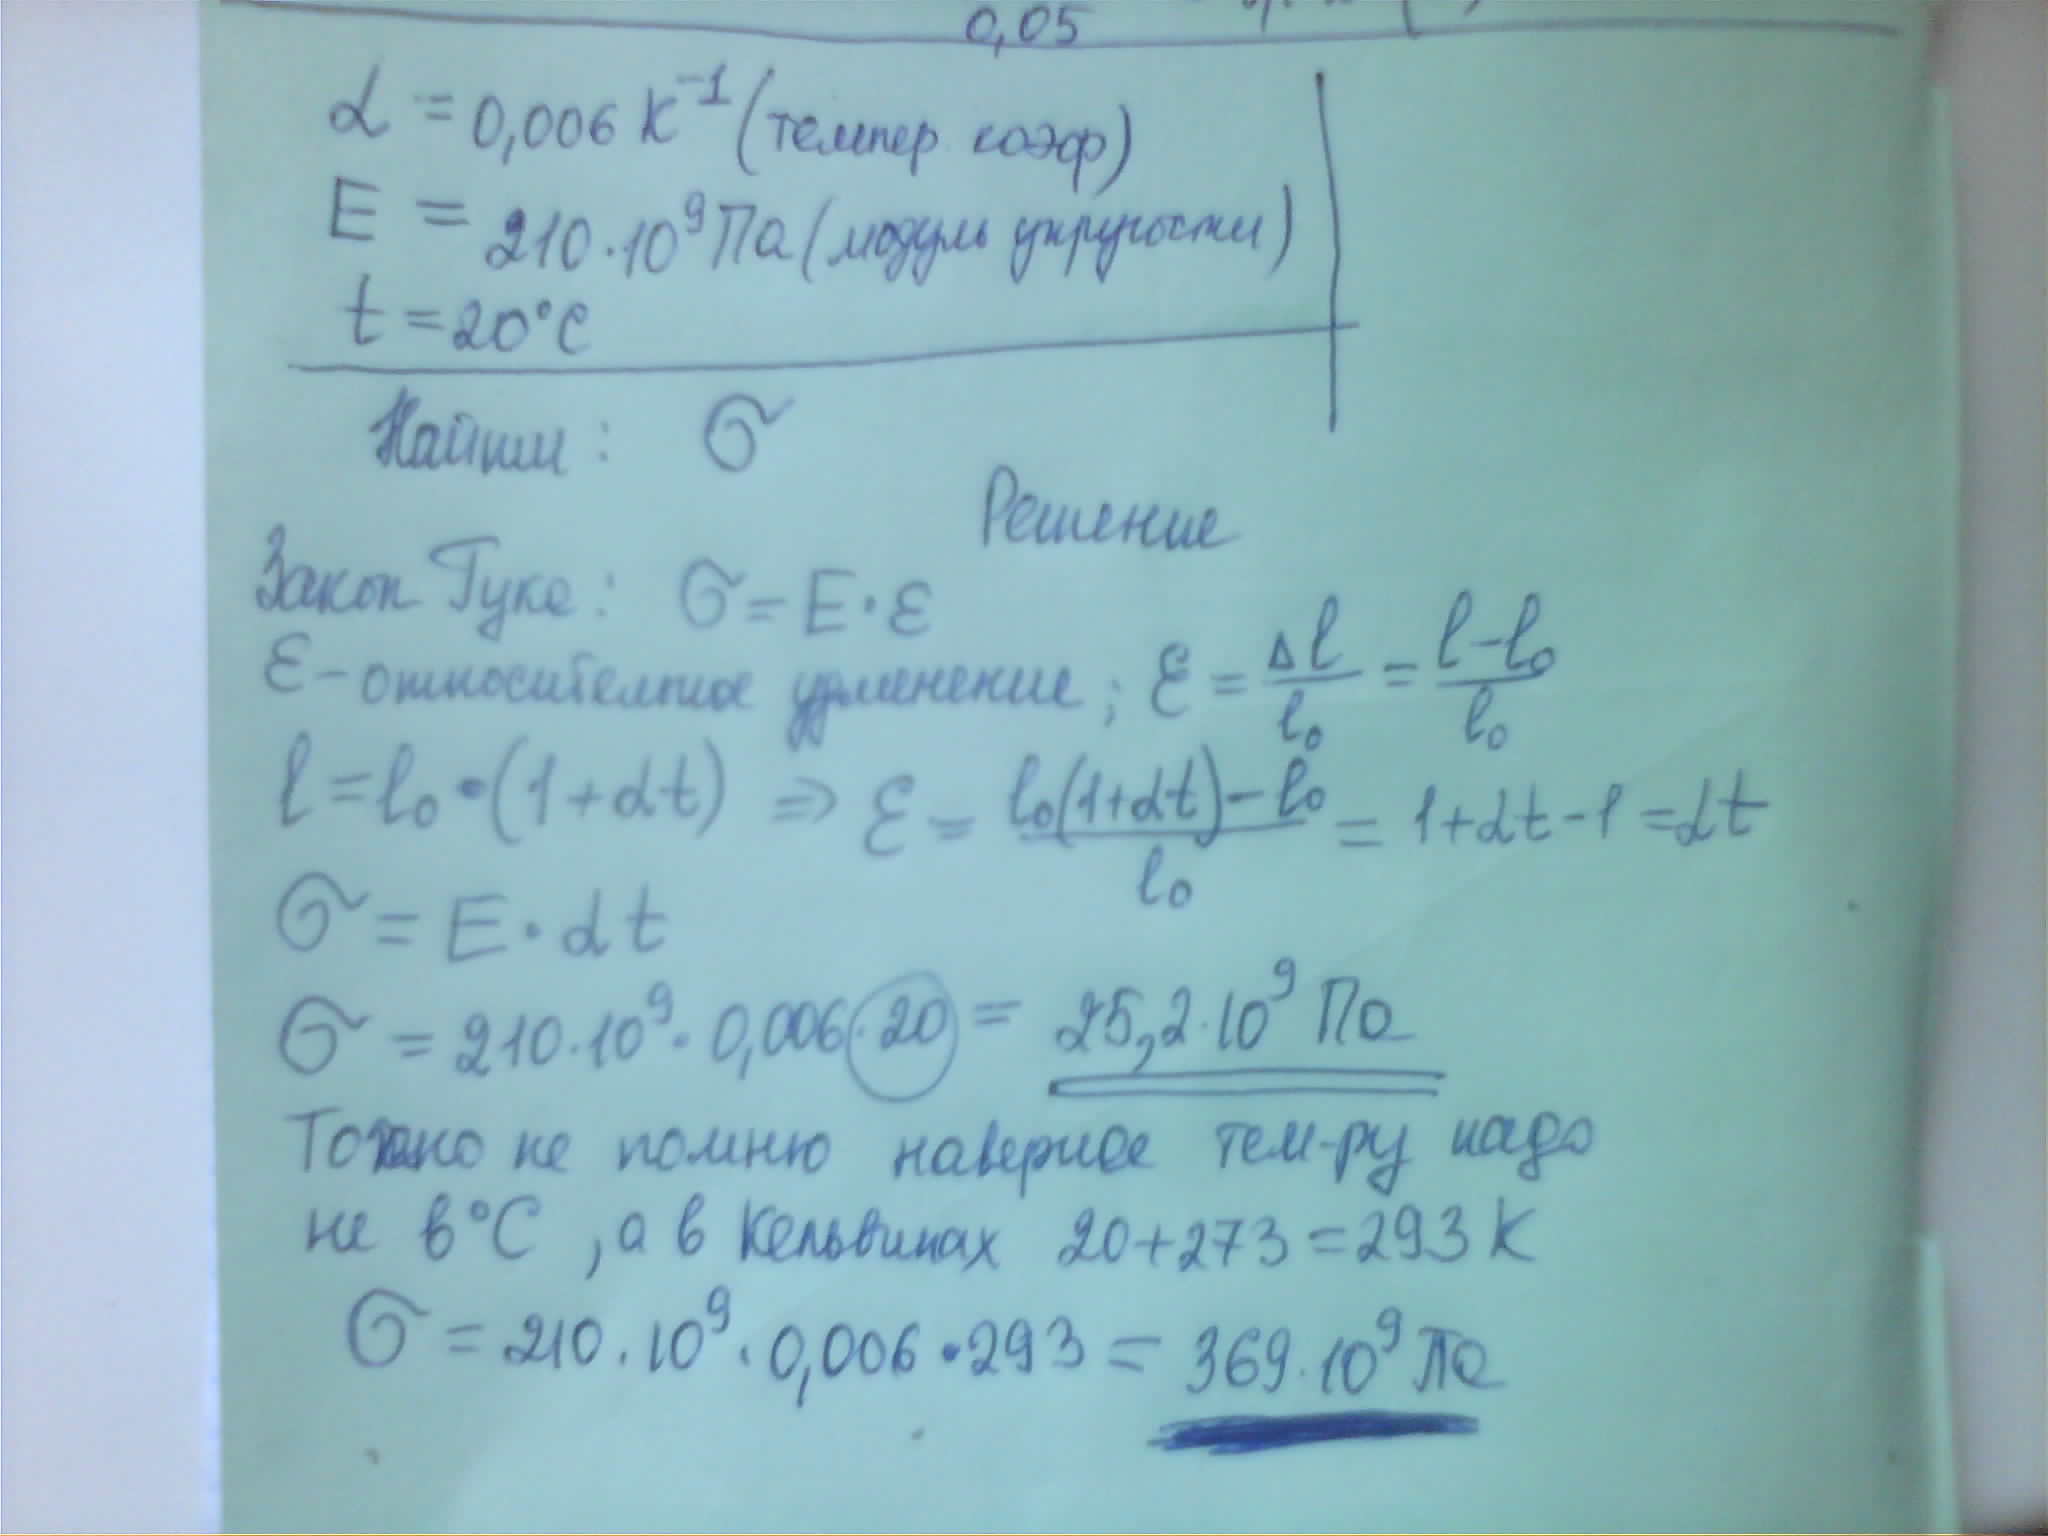 0,05
α = 0,006 К⁻¹ (темпер коэф)
E = 210·10⁹ Па (модуль упругости)
t = 20°C
Найти: σ
Решение
Закон Гука: σ = E·ε
ε – относительное удлинение; ε = Δl/l₀ = (l-l₀)/l₀
l = l₀·(1+αt) ⇒ ε = (l₀(1+αt)-l₀)/l₀ = 1+αt-1 = αt
σ = E·αt
σ = 210·10⁹·0,006·20 = 25,2·10⁹ Па
не помню наверное тем-ру надо
не в °C, а в Кельвинах 20+273=293 К
σ = 210·10⁹·0,006·293 = 369·10⁹ Па